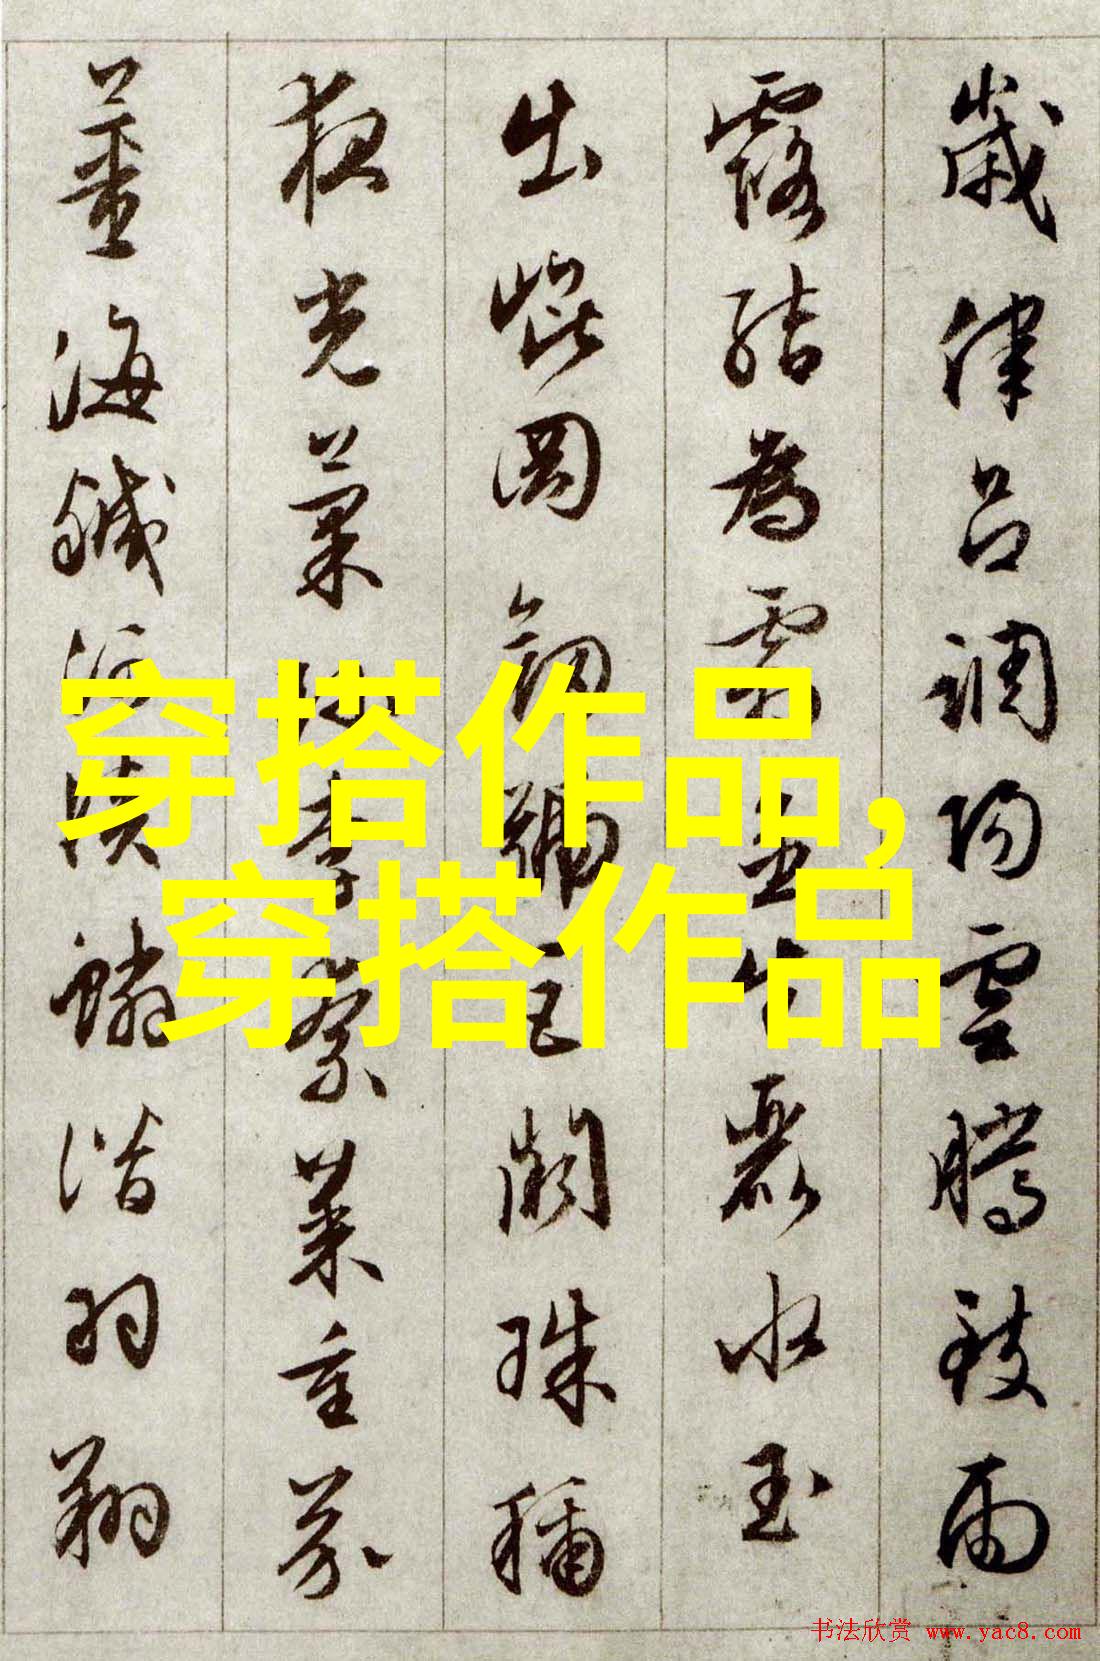 歲律呂調陽雲騰致雨
露結為霜金生麗水玉
出崐岡劒號巨闕珠稱
夜光菓珍李柰菜重芥
薑海鹹河淡鱗潛羽翔
穿搭作品,
穿搭作品
书法欣赏 www.yac8.com